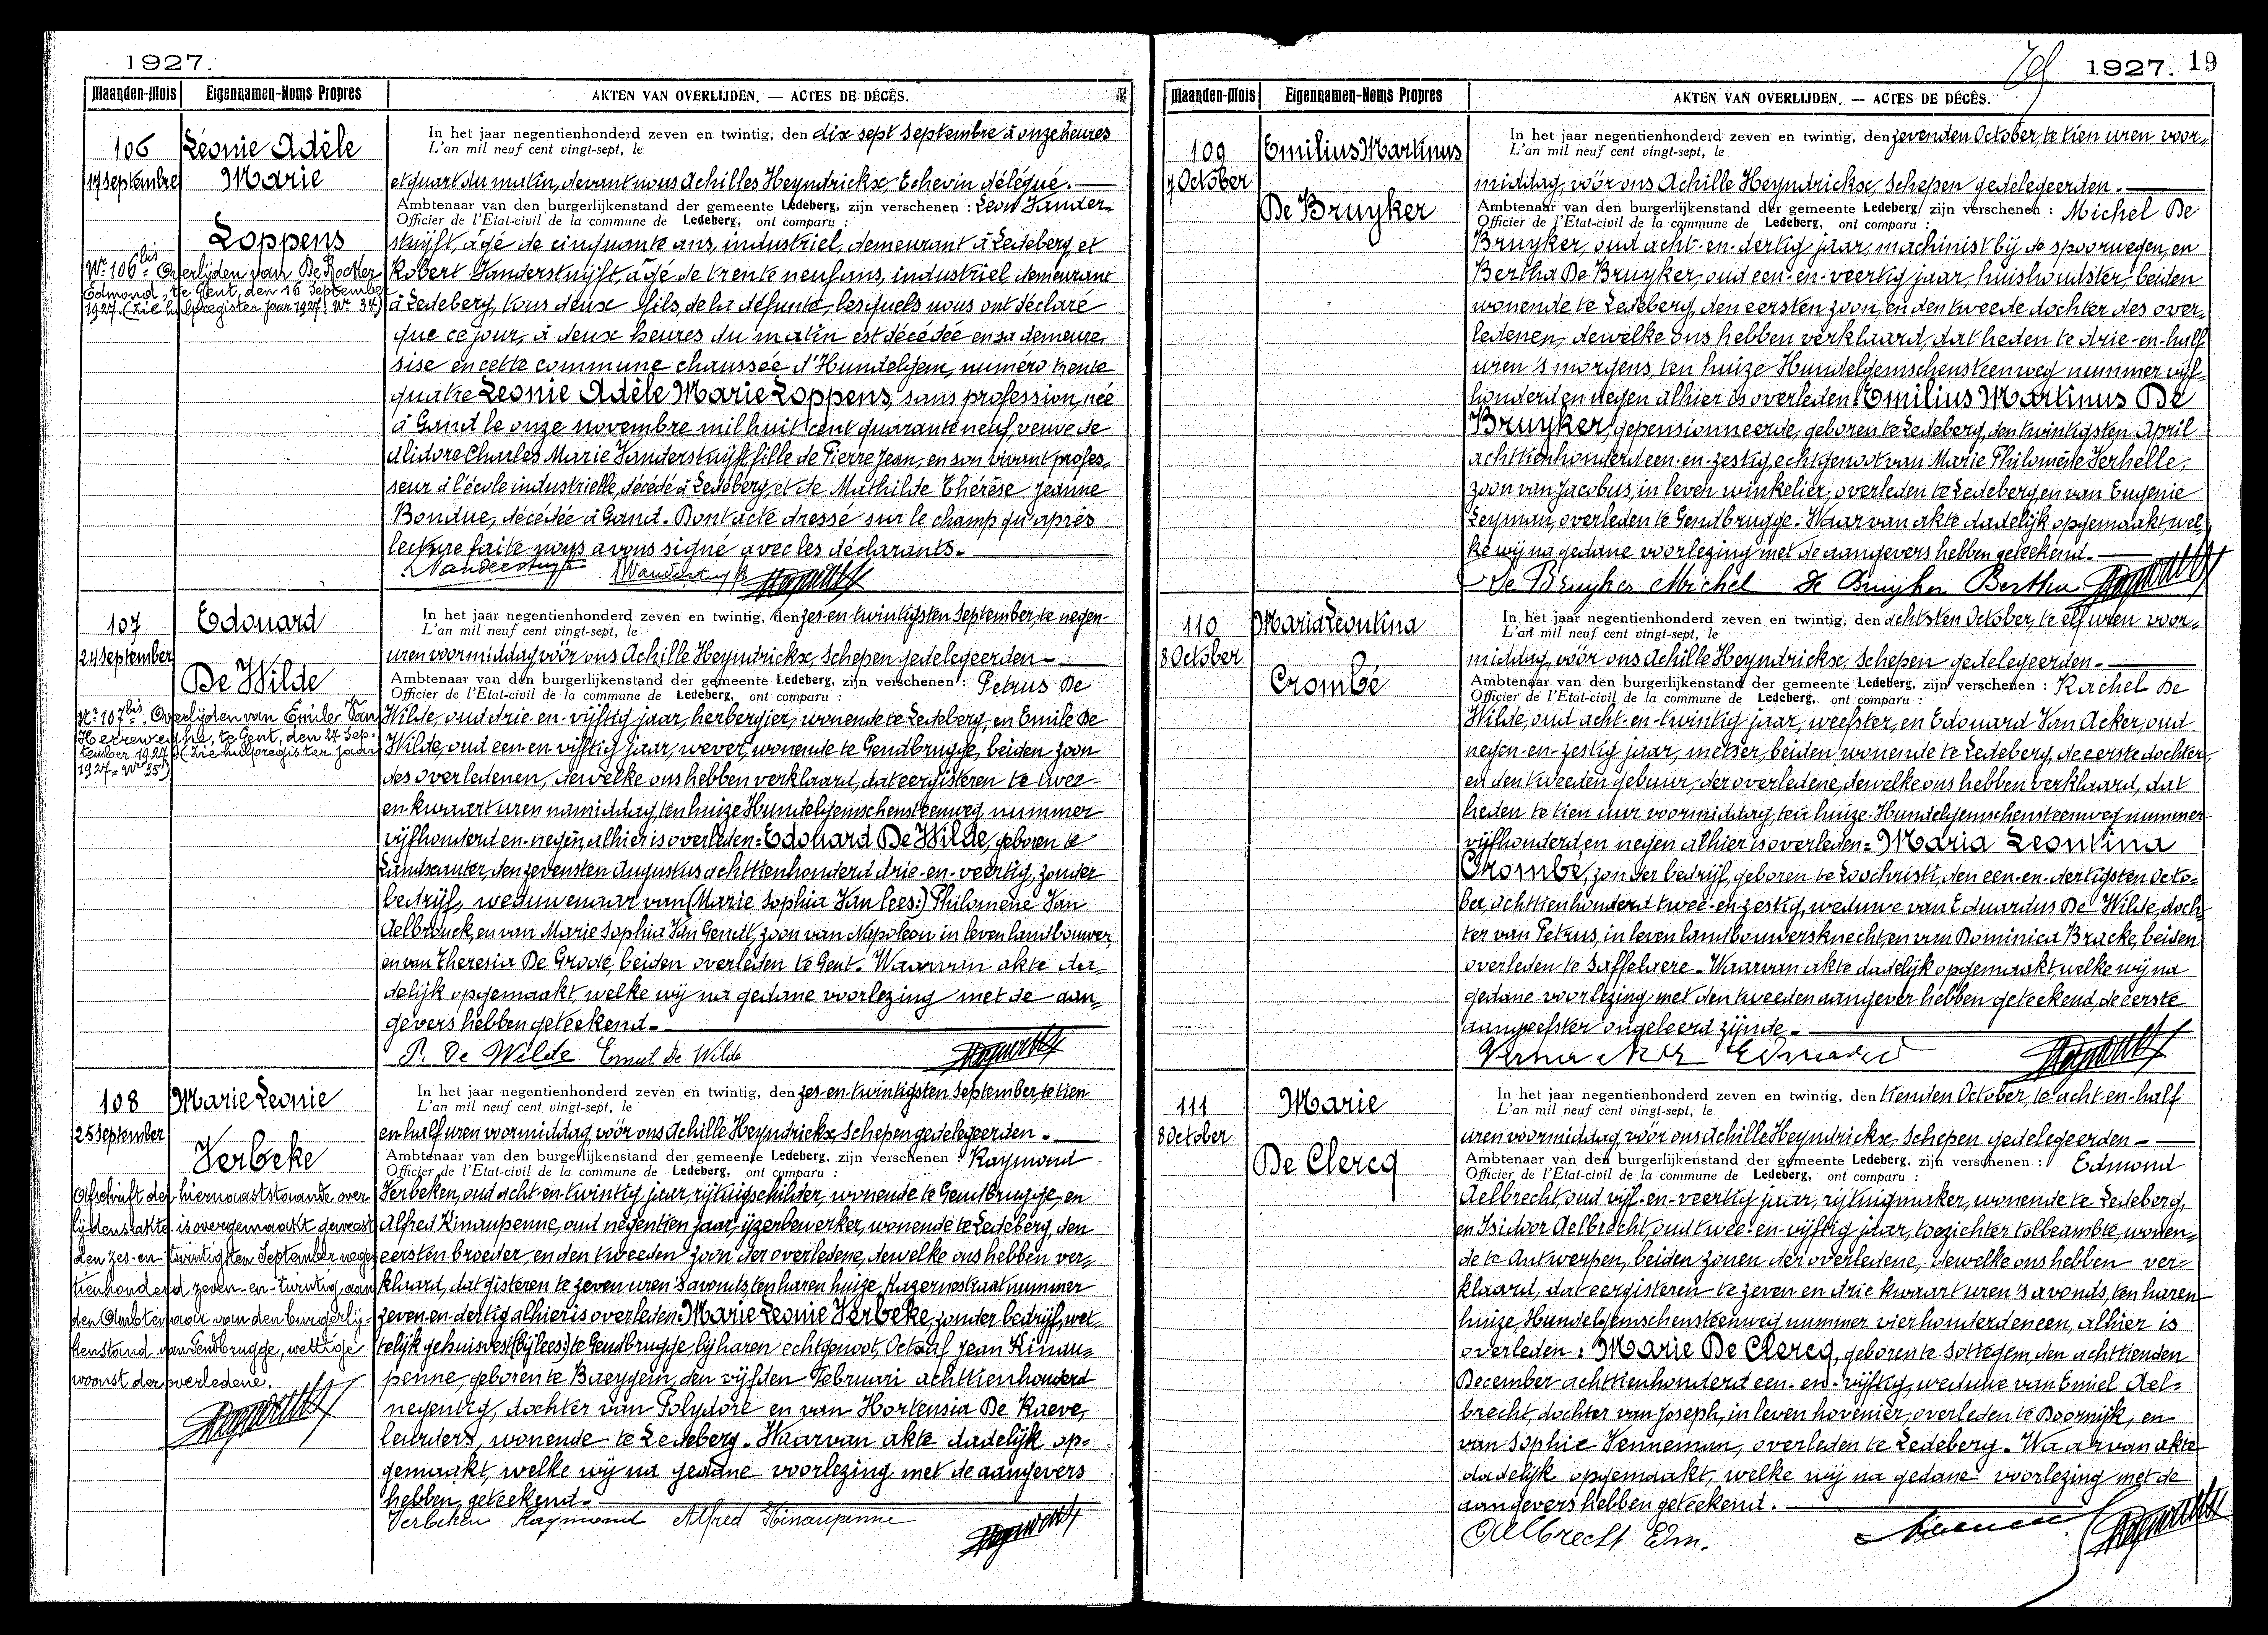 1927.
Maanden-Mois
Eigennamen-Noms Propres
AKTEN VAN OVERLIJDEN. — ACTES DE DÉCÈS.
106
17 Septembre
Léonie Adèle
Marie
Loppens
Nr 106bis Overlijden van De Rocker
Edmond, te Gent, den 16 September
1927. (Zie hulpregister jaar 1927. Nr 34)
In het jaar negentienhonderd zeven en twintig, den dix sept Septembre à onze heures
L'an mil neuf cent vingt-sept, le
et quart du matin, devant nous Achilles Heyndrickx, Echevin délégué.
Ambtenaar van den burgerlijkenstand der gemeente Ledeberg, zijn verschenen : Léon Vander-
Officier de l'Etat-civil de la commune de Ledeberg, ont comparu :
stuyft, âgé de cinquante ans, industriel, demeurant à Ledeberg, et
Robert Vanderstuyft, âgé de trente neuf ans, industriel, demeurant
à Ledeberg, tous deux fils de la défunte, lesquels nous ont déclaré
que ce jour, à deux heures du matin est décédée en sa demeure,
sise en cette commune chaussée d'Hundelgem, numéro trente
quatre Léonie Adèle Marie Loppens, sans profession, née
à Gand le onze novembre mil huit cent quarante neuf, veuve de
Alidore Charles Marie Vanderstuyft, fille de Pierre Jean, en son vivant profes-
seur à l'école industrielle, décédé à Ledeberg, et de Mathilde Thérèse Jeanne
Bondue, décédée à Gand. Dont acte dressé sur le champ qu'après
lecture faite nous avons signé avec les déclarants.
107
24 September
Edouard
De Wilde
Nr 107bis. Overlijden van Emile Van
Herreweghe, te Gent, den 24 Sep-
tember 1927 (Zie hulpregister jaar
1927 = Nr 35)
In het jaar negentienhonderd zeven en twintig, den zes-en-twintigsten September, te negen
L'an mil neuf cent vingt-sept, le
uren voormiddag vóór ons Achille Heyndrickx, Schepen gedelegeerden.
Ambtenaar van den burgerlijkenstand der gemeente Ledeberg, zijn verschenen : Petrus De
Officier de l'Etat-civil de la commune de Ledeberg, ont comparu :
Wilde, oud drie-en-vijftig jaar, herbergier, wonende te Ledeberg, en Emile De
Wilde, oud een en vijftig jaar, wever, wonende te Gendbrugge, beiden zoon
des overledenen, dewelke ons hebben verklaard, dat eergisteren te twee-
en-kwaart uren namiddag, ten huize Hundelgemschensteenweg nummer
vijfhonderd en-negen, alhier is overleden: Edouard De Wilde, geboren te
Landscauter, den zevensten Augustus achttienhonderd drie-en-veertig, zonder
bedrijf, weduwenaar van (Marie Sophia Van lees:) Philomene Van
Aelbrouck, en van Marie Sophia Van Gendt, zoon van Napoleon in leven landbouwer,
en van Theresia De Groote, beiden overleden te Gent. Waarvan akte da-
delijk opgemaakt, welke wij na gedane voorlezing met de aan-
gevers hebben geteekend.
P. De Wilde Emiel De Wilde
108
25 September
Marie Leonie
Verbeke
Afschrift der hiernaaststaande over
lijdensakte is overgemaakt geweest
den zes-en-twintigsten September nege
tienhonderd zeven-en-twintig, aan
den Ambtenaar van den burgerlij-
kenstand van Gendbrugge, wettige
woonst der overledene.
In het jaar negentienhonderd zeven en twintig, den zes-en-twintigsten September, te tien
L'an mil neuf cent vingt-sept, le
en half uren voormiddag, vóór ons Achille Heyndrickx, Schepen gedelegeerden.
Ambtenaar van den burgerlijkenstand der gemeente Ledeberg, zijn verschenen : Raymond
Officier de l'Etat-civil de la commune de Ledeberg, ont comparu :
Verbeken, oud acht-en-twintig jaar, rijtuigschilder, wonende te Gendbrugge, en
Alfred Kinaupenne, oud negentien jaar, ijzerbewerker, wonende te Ledeberg, den
eersten broeder, en den tweeden zoon der overledene, dewelke ons hebben ver-
klaard, dat gisteren te zeven uren 's avonds, ten haren huize Kazernestraat nummer
zeven en dertig alhier is overleden: Marie Leonie Verbeke, zonder bedrijf, wet-
telijk gehuisvest (bij lees:) te Gendbrugge, bij haren echtgenoot, Octaaf Jean Kinau-
penne, geboren te Baeygem, den vijfden Februari achttienhonderd
negentig, dochter van Polydore en van Hortensia De Raeve,
leurders, wonende te Ledeberg. Waarvan akte dadelijk op-
gemaakt, welke wij na gedane voorlezing met de aangevers
hebben geteekend.
Verbeken Raymond Alfred Kinaupenne
1927. 19
Maanden-Mois
Eigennamen-Noms Propres
AKTEN VAN OVERLIJDEN. — ACTES DE DÉCÈS.
109
7 October
Emilius Martinus
De Bruyker
In het jaar negentienhonderd zeven en twintig, den zevenden October, te tien uren voor-
L'an mil neuf cent vingt-sept, le
middag, vóór ons Achille Heyndrickx, Schepen gedelegeerden.
Ambtenaar van den burgerlijkenstand der gemeente Ledeberg, zijn verschenen : Michel De
Officier de l'Etat-civil de la commune de Ledeberg, ont comparu :
Bruyker, oud acht-en-dertig jaar, machinist bij de spoorwegen, en
Bertha De Bruyker, oud een-en-veertig jaar, huishoudster, beiden
wonende te Ledeberg, den eersten zoon, en den tweede dochter des over-
ledenen, dewelke ons hebben verklaard, dat heden te drie-en-half
uren 's morgens, ten huize Hundelgemschensteenweg nummer vijf-
honderd en negen alhier is overleden: Emilius Martinus De
Bruyker, gepensionneerde, geboren te Ledeberg, den twintigsten April
achttienhonderd een-en-zestig, echtgenoot van Marie Philomène Verhelle,
zoon van Jacobus, in leven winkelier, overleden te Ledeberg, en van Eugenie
Leyman, overleden te Gendbrugge. Waarvan akte dadelijk opgemaakt, wel-
ke wij na gedane voorlezing met de aangevers hebben geteekend.
De Bruyker Michel De Bruyker Bertha
110
8 October
Maria Leontina
Crombé
In het jaar negentienhonderd zeven en twintig, den achtsten October, te elf uren voor-
L'an mil neuf cent vingt-sept, le
middag, vóór ons Achille Heyndrickx, Schepen gedelegeerden.
Ambtenaar van den burgerlijkenstand der gemeente Ledeberg, zijn verschenen : Rachel De
Officier de l'Etat-civil de la commune de Ledeberg, ont comparu :
Wilde, oud acht-en-twintig jaar, weefster, en Edouard Van Acker, oud
negen-en-zestig jaar, metser, beiden wonende te Ledeberg, de eerste dochter,
en den tweeden gebuur, der overledene, dewelke ons hebben verklaard, dat
heden te tien uur voormiddag, ten huize Hundelgemschensteenweg nummer
vijfhonderd en negen alhier is overleden: Maria Leontina
Crombé, zonder bedrijf, geboren te Loochristi, den een-en-dertigsten Octo-
ber, achttienhonderd twee-en zestig, weduwe van Eduardus De Wilde, doch-
ter van Petrus, in leven landbouwersknecht, en van Dominica Bracke, beiden
overleden te Saffelaere. Waarvan akte dadelijk opgemaakt, welke wij na
gedane voorlezing met den tweeden aangever hebben geteekend, de eerste
aangeefster ongeleerd zijnde.
111
8 October
Marie
De Clercq
In het jaar negentienhonderd zeven en twintig, den tienden October, te acht-en-half
L'an mil neuf cent vingt-sept, le
uren voormiddag, vóór ons Achille Heyndrickx, Schepen gedelegeerden
Ambtenaar van den burgerlijkenstand der gemeente Ledeberg, zijn verschenen : Edmond
Officier de l'Etat-civil de la commune de Ledeberg, ont comparu :
Aelbrecht, oud vijf-en-veertig jaar, rijtuigmaker, wonende te Ledeberg,
en Isidoor Aelbrecht, oud twee-en-vijftig jaar, toezichter tolbeambte, wonen-
de te Antwerpen, beiden zonen der overledene, dewelke ons hebben ver-
klaard, dat eergisteren te zeven en drie kwaart uren 's avonds, ten haren
huize, Hundelgemschensteenweg nummer vierhonderd en een, alhier is
overleden : Marie De Clercq, geboren te Sottegem, den achttienden
December achttienhonderd een-en-vijftig, weduwe van Emiel Ael-
brecht, dochter van Joseph, in leven hovenier, overleden te Doornijk, en
van Sophie Venneman, overleden te Ledeberg. Waarvan akte
dadelijk opgemaakt, welke wij na gedane voorlezing met de
aangevers hebben geteekend.
Aelbrecht Edm.